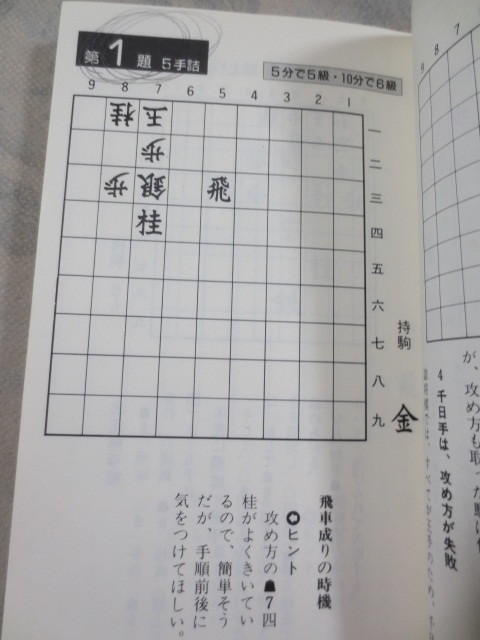 第1題 5手詰
5分で5級・10分で6級
9 8 7 6 5 4 3 2 1
桂 王 一
歩 二
歩 銀 飛 三
桂 四
五
六
七
八
九
持駒 金
飛車成りの時機
ヒント
攻め方の☗7四
桂がよくきいてい
るので、簡単そう
だが、手順前後に
気をつけてほしい。
9 8 7
4 千日手は、攻め方が失敗